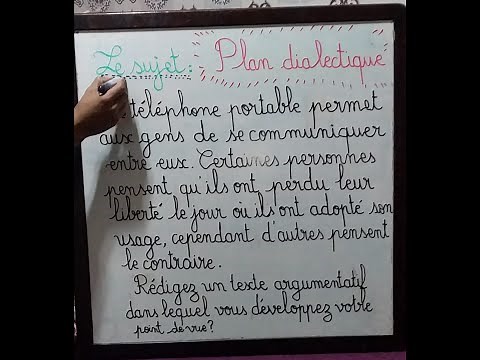 Le sujet: Plan dialectique
téléphone portable permet
aux gens de se communiquer
entre eux. Certaines personnes
pensent qu'ils ont perdu leur
liberté le jour où ils ont adopté son
usage, cependant d'autres pensent
le contraire.
Rédigez un texte argumentatif
dans lequel vous développez votre
point de vue?